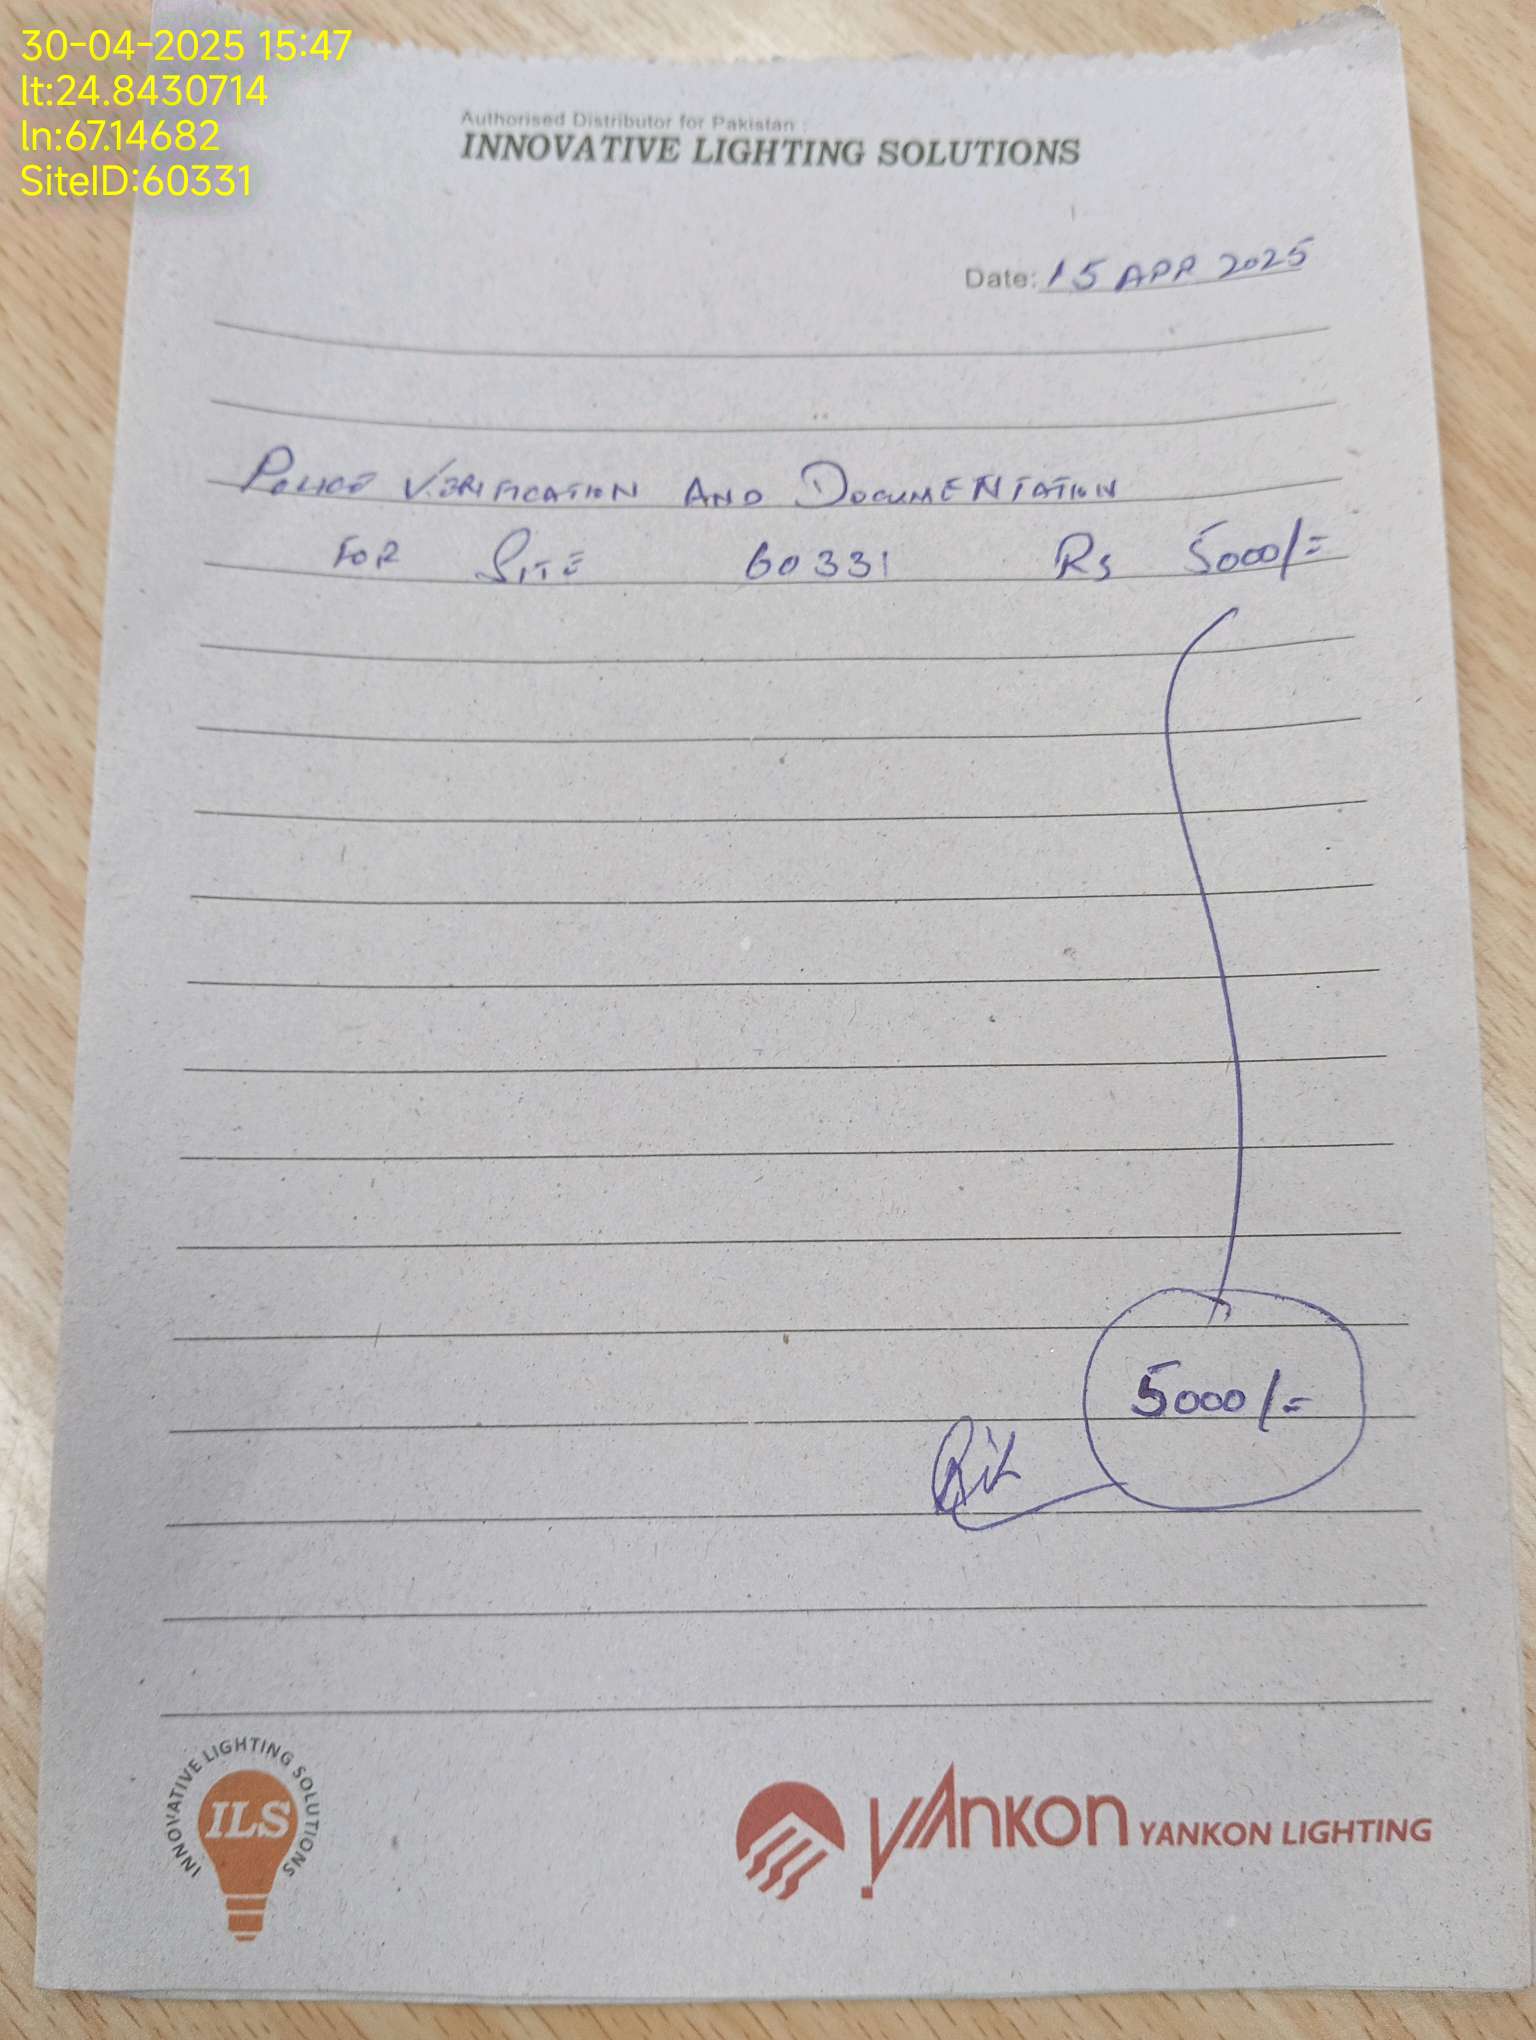 30-04-2025 15:47
lt:24.8430714
ln:67.14682
SiteID:60331
Authorised Distributor for Pakistan :
INNOVATIVE LIGHTING SOLUTIONS
Date: 15 APR 2025
POLICE VERIFICATION AND DOCUMENTATION
FOR SITE 60331 Rs 5000/=
5000/=
INNOVATIVE LIGHTING SOLUTIONS
ILS
YANKON YANKON LIGHTING